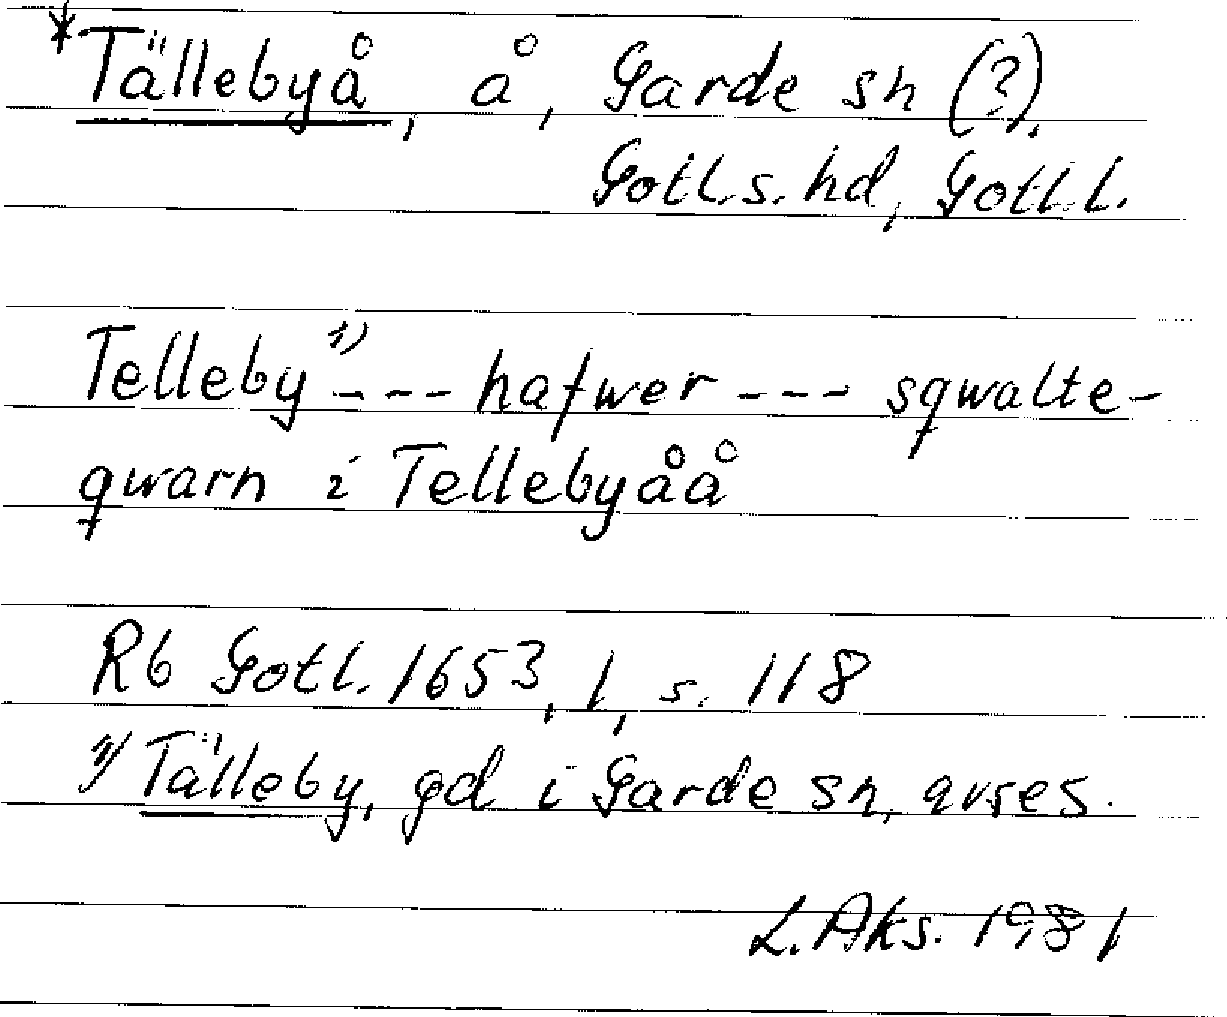 *Tällebyå, å, Garde sn (?).
Gotl.s. hd, Gotl.l.
Telleby ¹⁾ --- hafwer --- sqwalte-
qwarn i Tellebyåå
Rb Gotl. 1653, 1, s. 118
¹⁾ Tälleby, gd i Garde sn, avses.
L. Aks. 1981